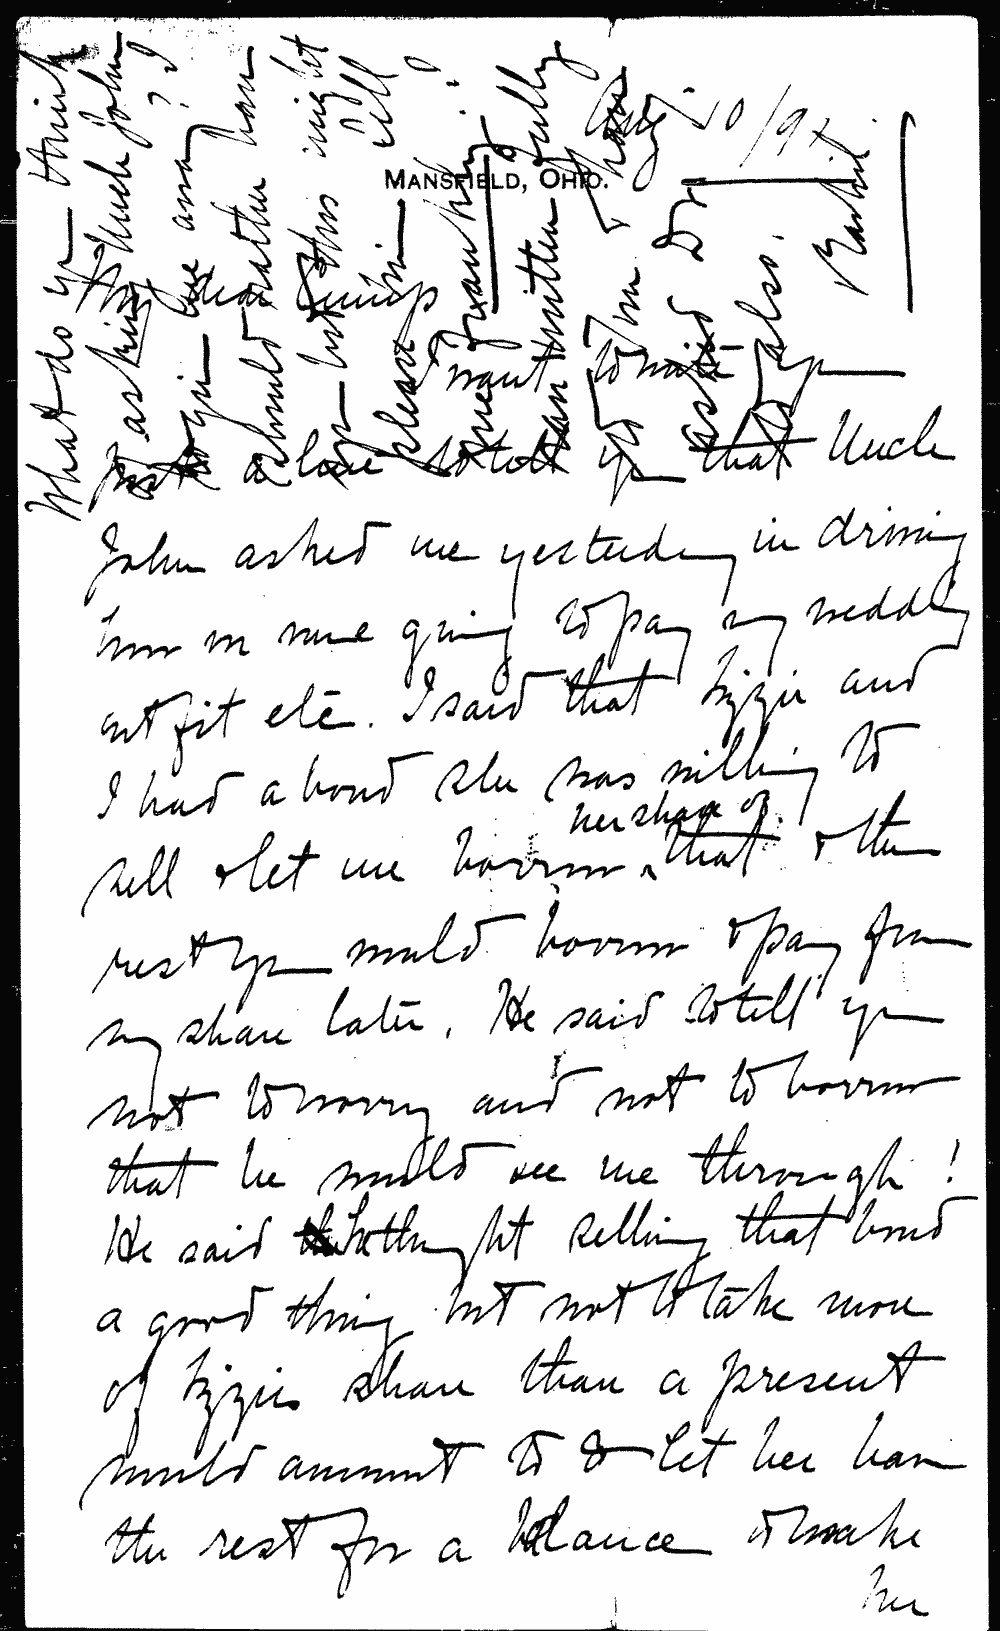 Aug 20/91
MANSFIELD, OHIO.
My dear Cump
I want to write you
just a line to tell you that Uncle
John asked me yesterday in driving
how we were going to pay my wedding
outfit etc. I said that Lizzie and
I had a bond she was willing to
sell & let me borrow her share of that & the
rest you would borrow & pay from
my share later. He said to tell you
not to worry and not to borrow
that he would see me through!
He said he thought selling that bond
a good thing but not to take more
of Lizzie's share than a present
would amount to & let her have
the rest for a balance & make
her
What do you think
of asking Hugh John
to give me away? I
should rather have
you but this might
please him
written fully
asked also.
Rachel